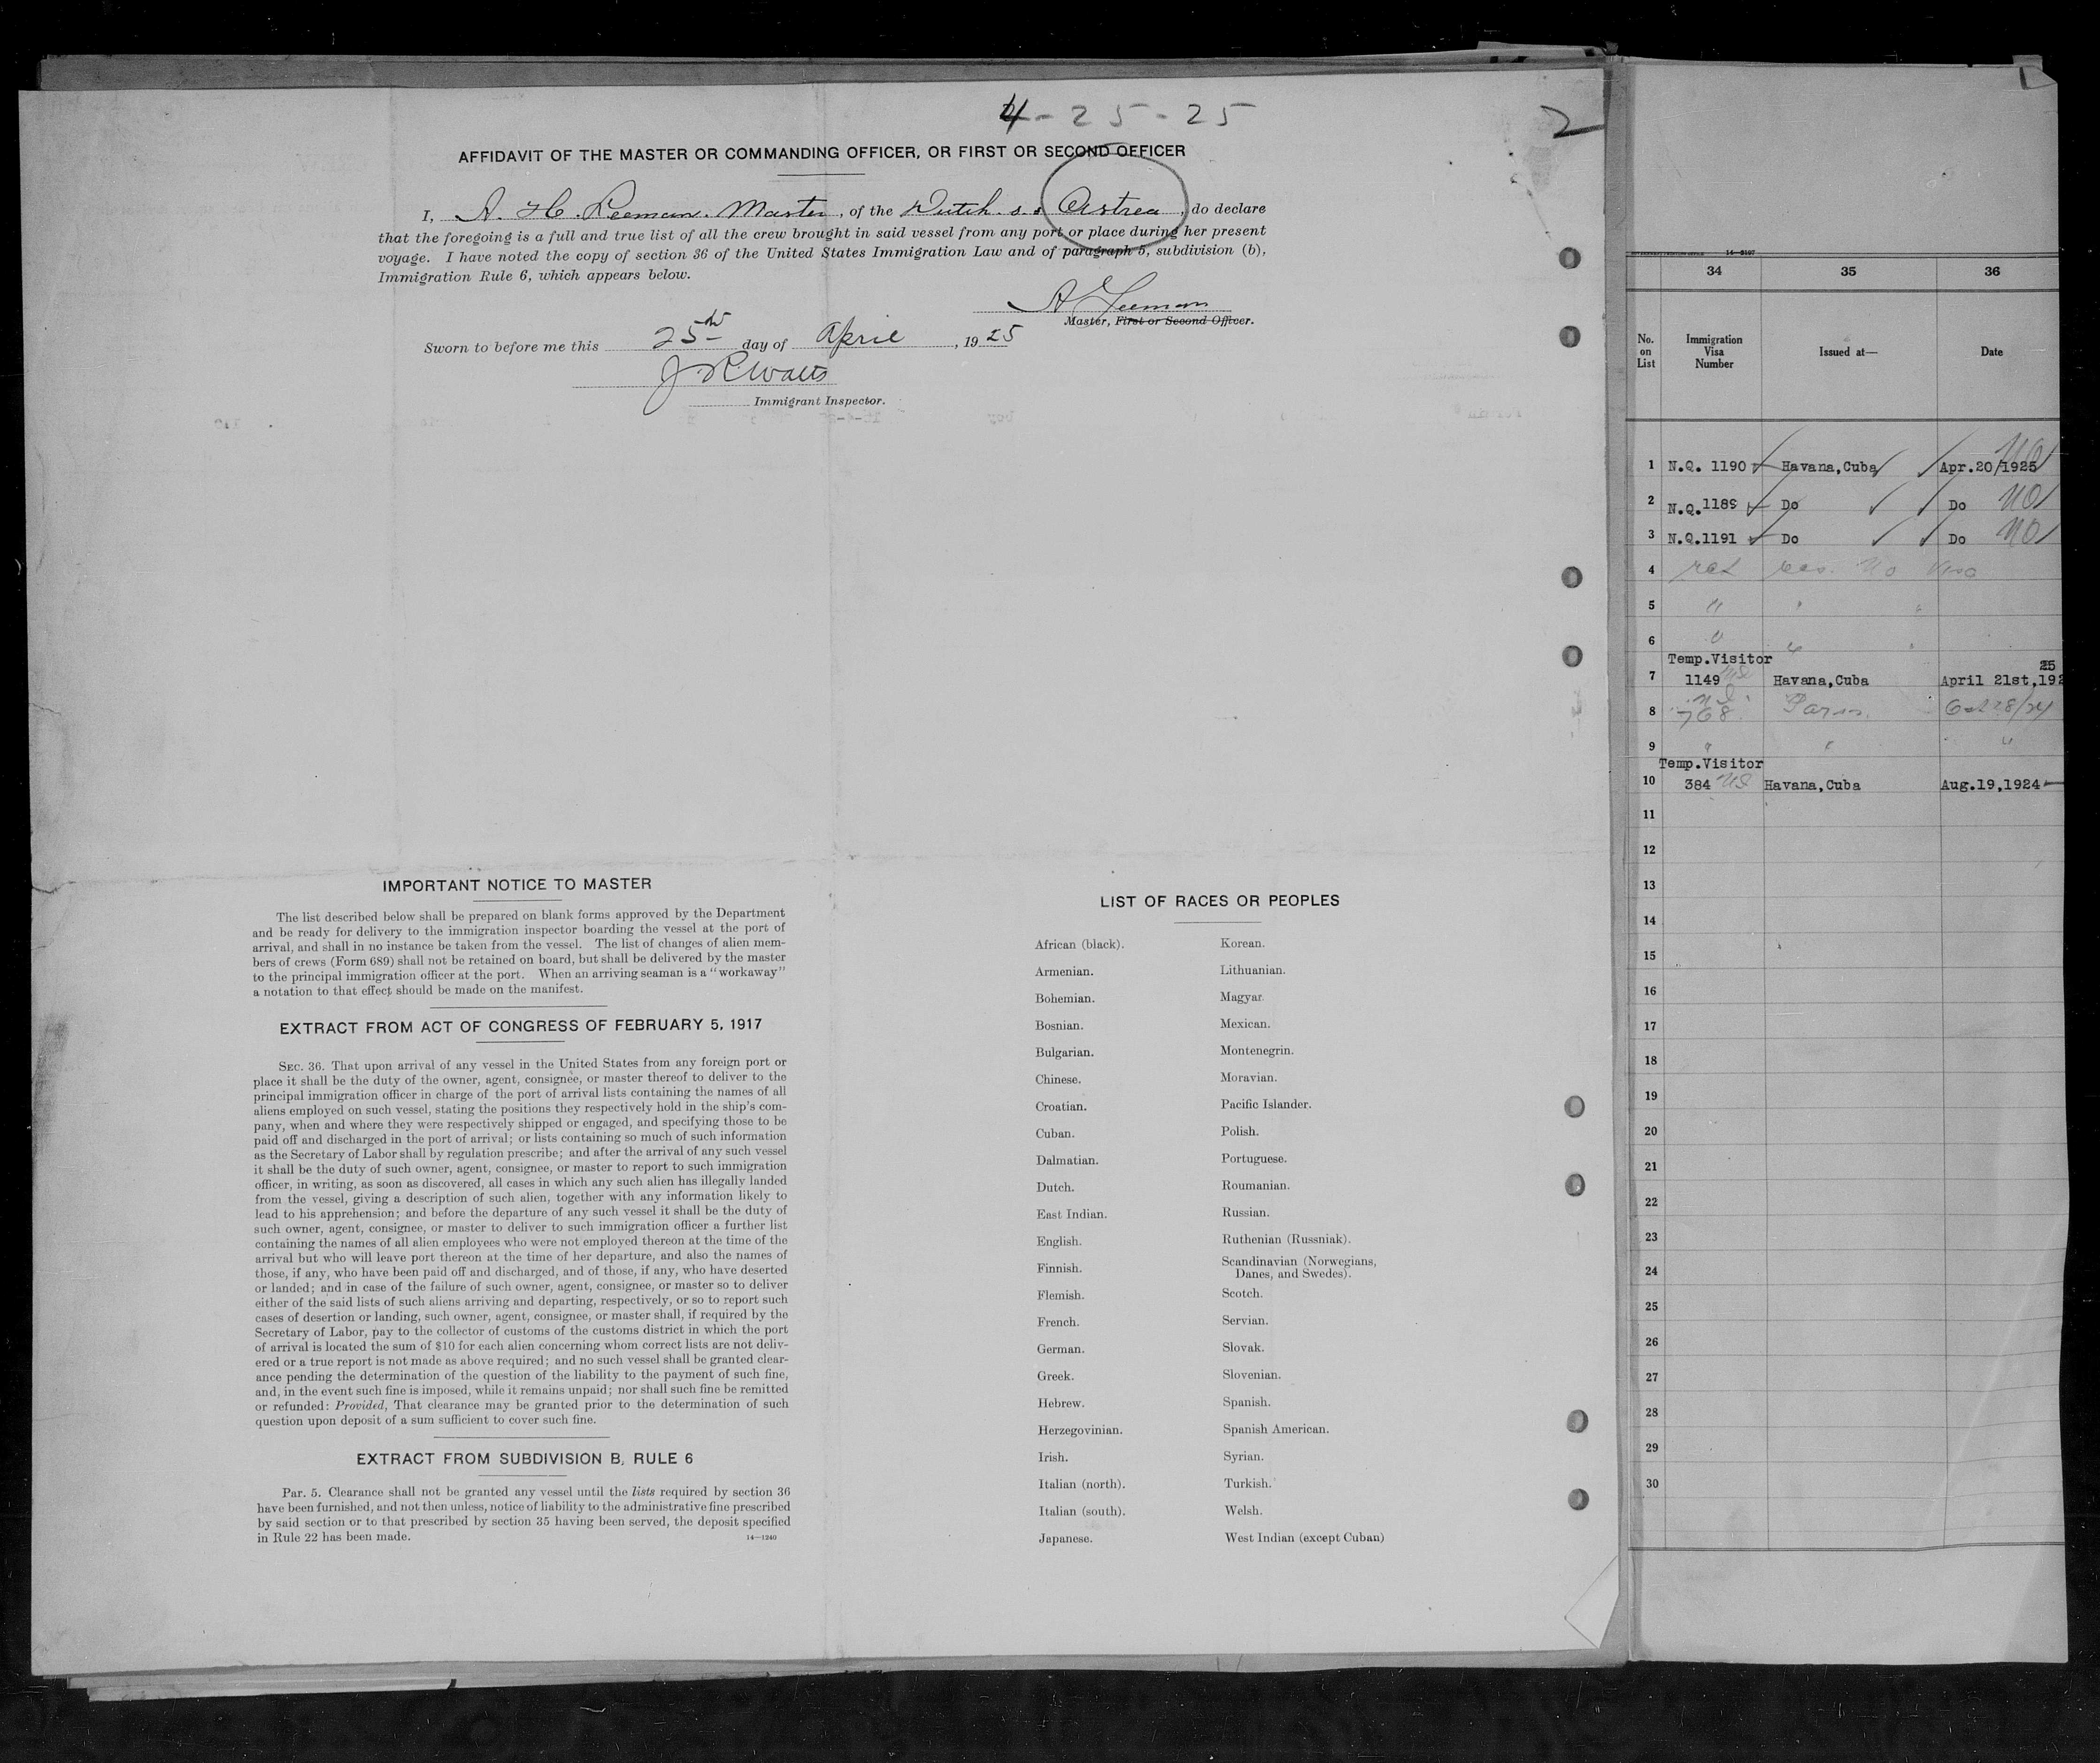 4-25-25
2
AFFIDAVIT OF THE MASTER OR COMMANDING OFFICER, OR FIRST OR SECOND OFFICER
I, A. H. Leeman. Master, of the Dutch s.s. Astrea, do declare
that the foregoing is a full and true list of all the crew brought in said vessel from any port or place during her present
voyage. I have noted the copy of section 36 of the United States Immigration Law and of paragraph 5, subdivision (b),
Immigration Rule 6, which appears below.
A Leeman
Master, First or Second Officer.
Sworn to before me this 25th day of April, 1925
Immigrant Inspector.
IMPORTANT NOTICE TO MASTER
The list described below shall be prepared on blank forms approved by the Department
and be ready for delivery to the immigration inspector boarding the vessel at the port of
arrival, and shall in no instance be taken from the vessel. The list of changes of alien mem-
bers of crews (Form 689) shall not be retained on board, but shall be delivered by the master
to the principal immigration officer at the port. When an arriving seaman is a "workaway"
a notation to that effect should be made on the manifest.
EXTRACT FROM ACT OF CONGRESS OF FEBRUARY 5, 1917
SEC. 36. That upon arrival of any vessel in the United States from any foreign port or
place it shall be the duty of the owner, agent, consignee, or master thereof to deliver to the
principal immigration officer in charge of the port of arrival lists containing the names of all
aliens employed on such vessel, stating the positions they respectively hold in the ship's com-
pany, when and where they were respectively shipped or engaged, and specifying those to be
paid off and discharged in the port of arrival; or lists containing so much of such information
as the Secretary of Labor shall by regulation prescribe; and after the arrival of any such vessel
it shall be the duty of such owner, agent, consignee, or master to report to such immigration
officer, in writing, as soon as discovered, all cases in which any such alien has illegally landed
from the vessel, giving a description of such alien, together with any information likely to
lead to his apprehension; and before the departure of any such vessel it shall be the duty of
such owner, agent, consignee, or master to deliver to such immigration officer a further list
containing the names of all alien employees who were not employed thereon at the time of the
arrival but who will leave port thereon at the time of her departure, and also the names of
those, if any, who have been paid off and discharged, and of those, if any, who have deserted
or landed; and in case of the failure of such owner, agent, consignee, or master so to deliver
either of the said lists of such aliens arriving and departing, respectively, or so to report such
cases of desertion or landing, such owner, agent, consignee, or master shall, if required by the
Secretary of Labor, pay to the collector of customs of the customs district in which the port
of arrival is located the sum of $10 for each alien concerning whom correct lists are not deliv-
ered or a true report is not made as above required; and no such vessel shall be granted clear-
ance pending the determination of the question of the liability to the payment of such fine,
and, in the event such fine is imposed, while it remains unpaid; nor shall such fine be remitted
or refunded: Provided, That clearance may be granted prior to the determination of such
question upon deposit of a sum sufficient to cover such fine.
EXTRACT FROM SUBDIVISION B, RULE 6
Par. 5. Clearance shall not be granted any vessel until the lists required by section 36
have been furnished, and not then unless, notice of liability to the administrative fine prescribed
by said section or to that prescribed by section 35 having been served, the deposit specified
in Rule 22 has been made.
14—1240
LIST OF RACES OR PEOPLES
African (black). Korean.
Armenian. Lithuanian.
Bohemian. Magyar.
Bosnian. Mexican.
Bulgarian. Montenegrin.
Chinese. Moravian.
Croatian. Pacific Islander.
Cuban. Polish.
Dalmatian. Portuguese.
Dutch. Roumanian.
East Indian. Russian.
English. Ruthenian (Russniak).
Finnish. Scandinavian (Norwegians,
Danes, and Swedes).
Flemish. Scotch.
French. Servian.
German. Slovak.
Greek. Slovenian.
Hebrew. Spanish.
Herzegovinian. Spanish American.
Irish. Syrian.
Italian (north). Turkish.
Italian (south). Welsh.
Japanese. West Indian (except Cuban)
14—3107
34 35 36
No. on List
Immigration Visa Number
Issued at—
Date
1 N.Q. 1190 Havana,Cuba Apr.20/1925 NO
2 N.Q.1189 Do Do NO
3 N.Q.1191 Do Do NO
4 No Visa
5 "
6 "
Temp.Visitor
7 1149 Havana,Cuba April 21st,1925
8 768 Paris Oct 28/24
9 " " "
Temp.Visitor
10 384 Havana,Cuba Aug.19,1924
11
12
13
14
15
16
17
18
19
20
21
22
23
24
25
26
27
28
29
30